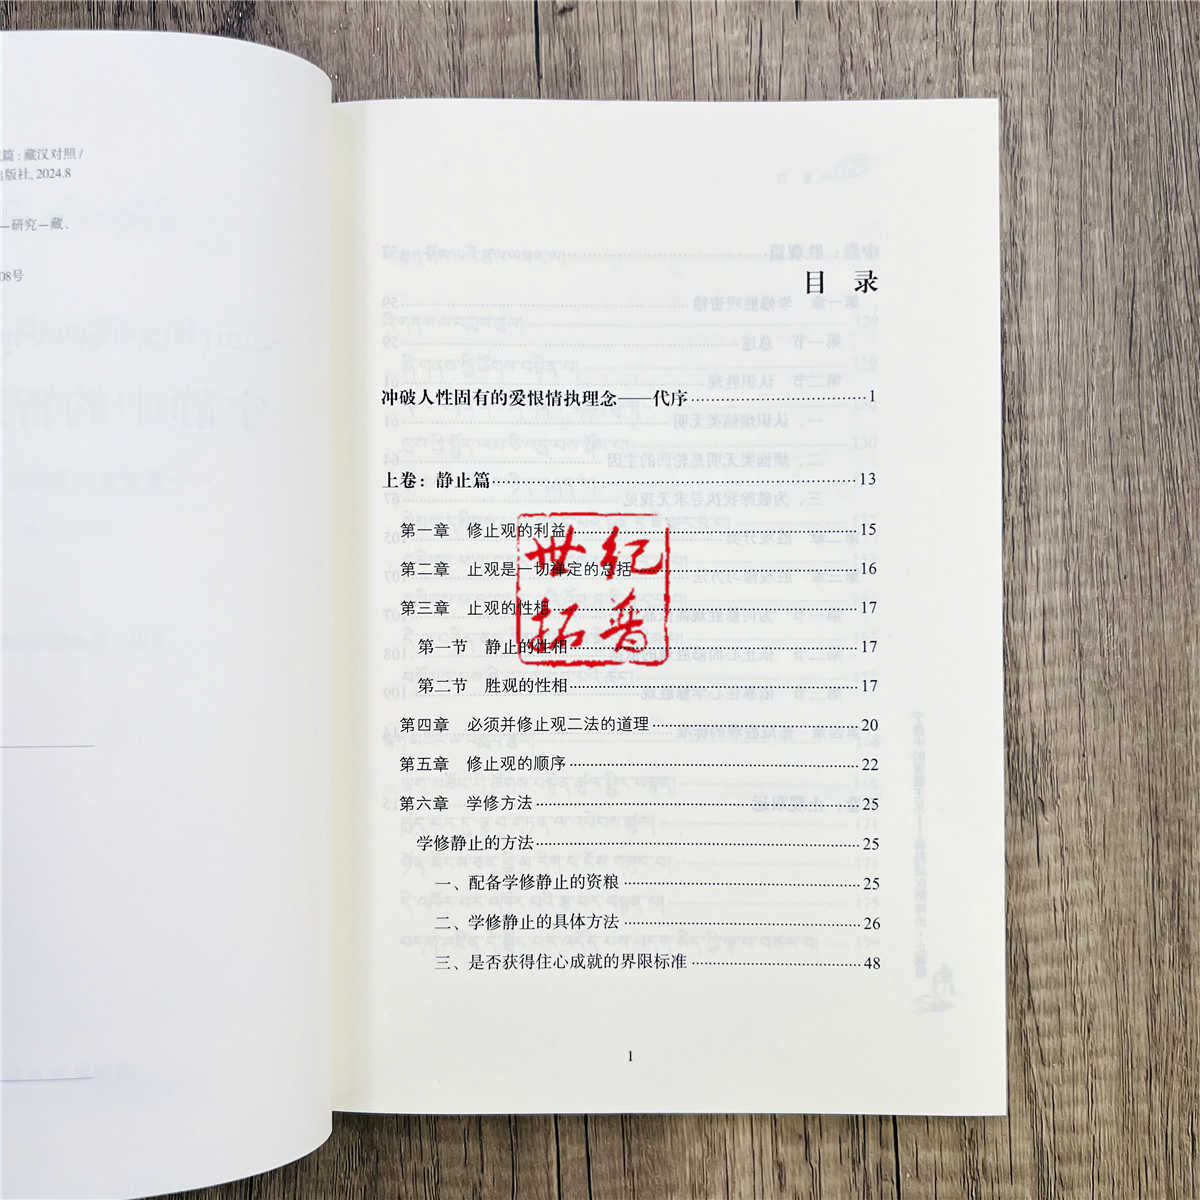 篇：藏汉对照 /
出版社, 2024.8
—研究—藏、
08号
目 录
冲破人性固有的爱恨情执理念——代序 1
上卷：静止篇 13
第一章 修止观的利益 15
第二章 止观是一切禅定的总括 16
第三章 止观的性相 17
第一节 静止的性相 17
第二节 胜观的性相 17
第四章 必须并修止观二法的道理 20
第五章 修止观的顺序 22
第六章 学修方法 25
学修静止的方法 25
一、配备学修静止的资粮 25
二、学修静止的具体方法 26
三、是否获得住心成就的界限标准 48
世纪
拓普
1